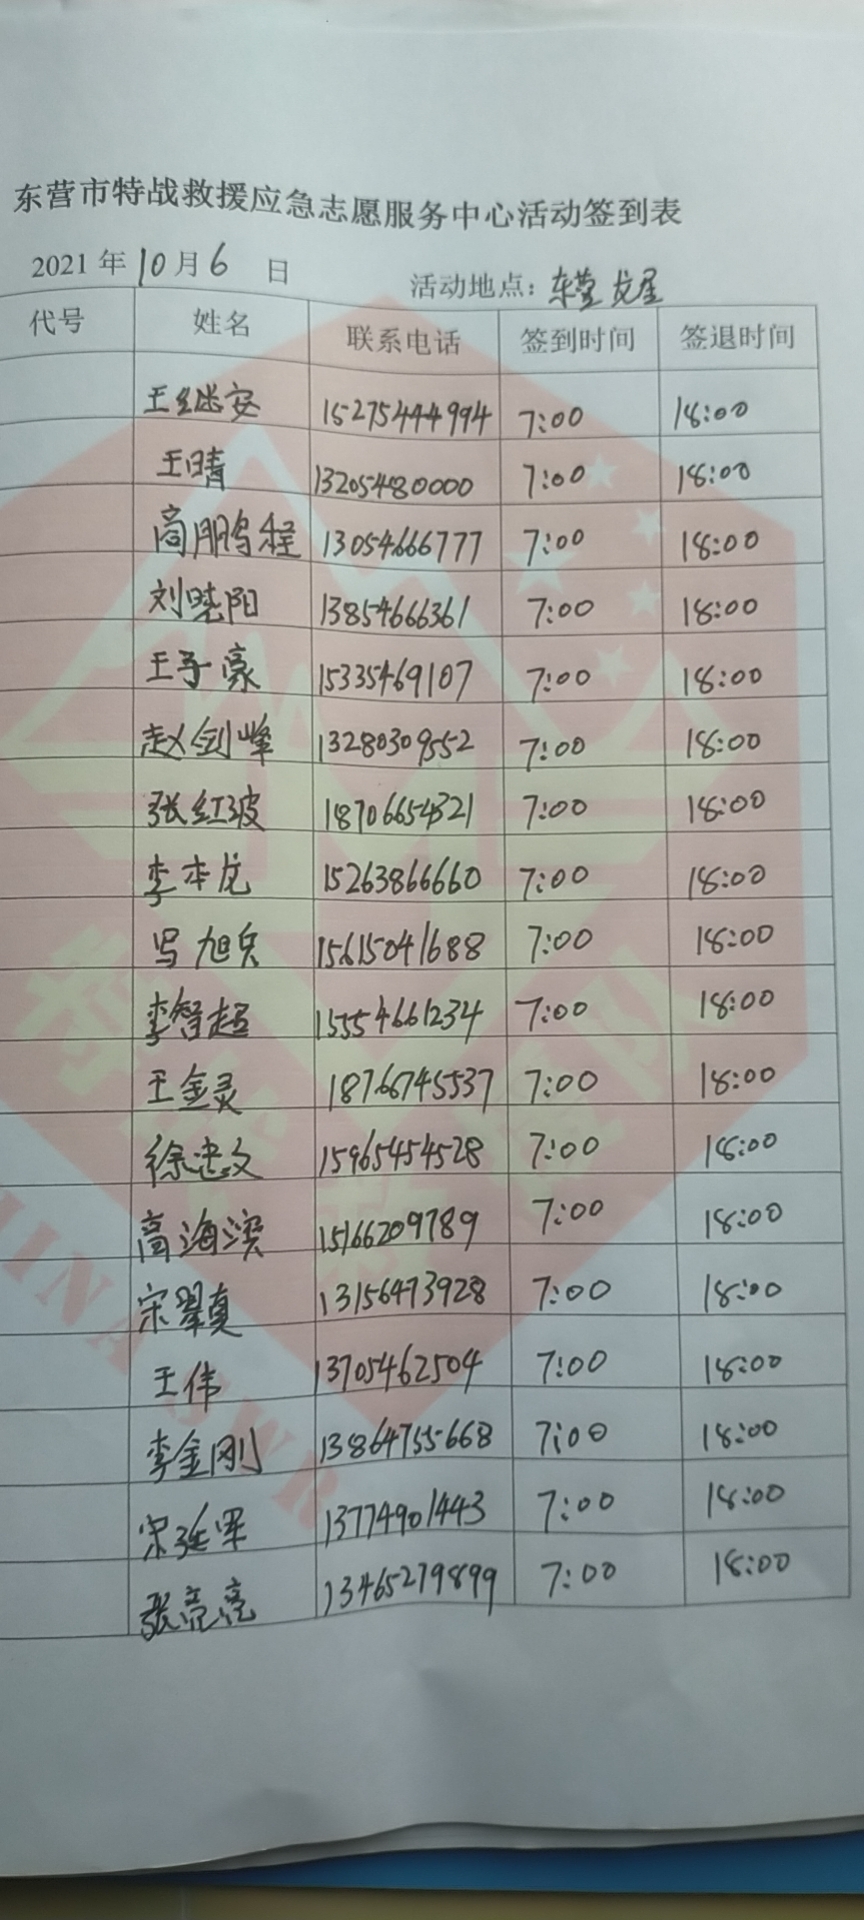 东营市特战救援应急志愿服务中心活动签到表
2021 年 10 月 6 日 活动地点：东营龙居
代号 姓名 联系电话 签到时间 签退时间
王继安 15275444994 7:00 18:00
王晴 13205480000 7:00 18:00
高鹏程 13054666777 7:00 18:00
刘晓阳 13854666361 7:00 18:00
王子豪 15335469107 7:00 18:00
赵剑峰 13280309552 7:00 18:00
张红波 18706654321 7:00 18:00
李本龙 15263866660 7:00 18:00
旭兵 15615041688 7:00 18:00
李智超 15554661234 7:00 18:00
王金灵 18766745537 7:00 18:00
徐忠文 15965454528 7:00 18:00
高海滨 15166209789 7:00 18:00
宋翠真 13156473928 7:00 18:00
王伟 13705462504 7:00 18:00
李金刚 13864755668 7:00 18:00
宋延军 13774901443 7:00 18:00
张亮亮 13465279899 7:00 18:00